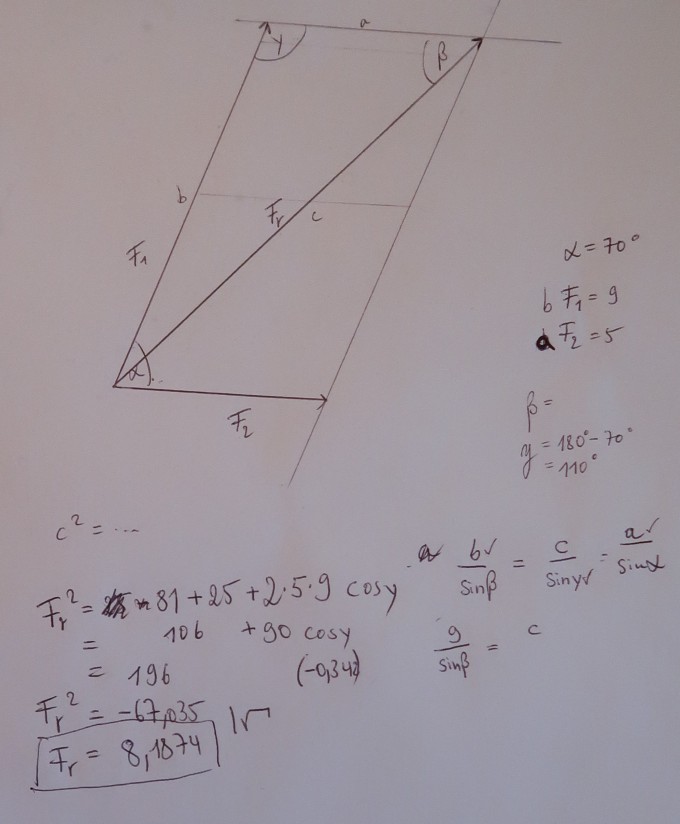 a
γ
β
b
F₁
Fr
c
α
F₂
α = 70°
b F₁ = 9
a F₂ = 5
β =
γ = 180° - 70°
= 110°
c² = ...
Fr² = - 81 + 25 + 2·5·9 cosγ
= 106 + 90 cosγ
= 196 (-0,342)
Fr² = -67,035 |√
Fr = 8,1874
b✓/sinβ = c/sinγ✓ = a✓/sinα
9/sinβ = c